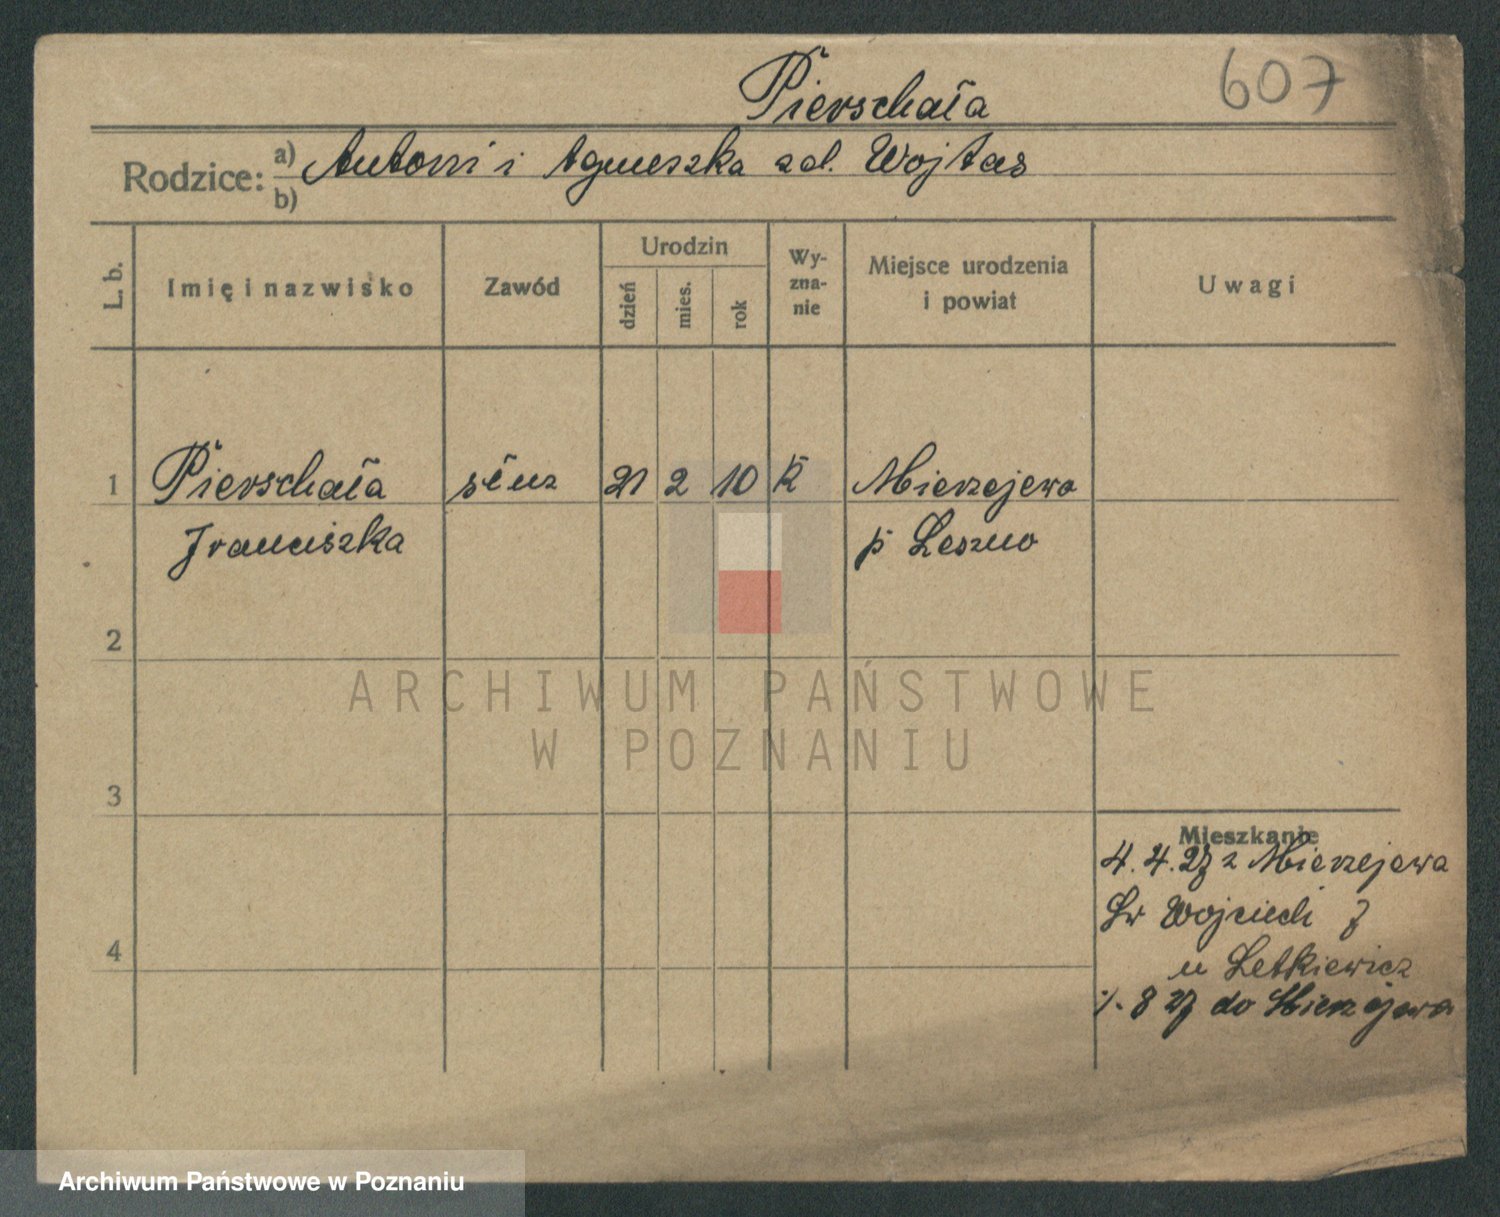 607
Pierschała
Rodzice: a) Antoni i Agnieszka zd. Wojtas
b)
L. b.
Imię i nazwisko
Zawód
Urodzin
dzień
mies.
rok
Wy-
zna-
nie
Miejsce urodzenia
i powiat
Uwagi
1 Pierschała służ 21 2 10 K Mierzejewo
Franciszka p Leszno
2
3
4
ARCHIWUM PAŃSTWOWE
W POZNANIU
Mieszkanie
4.4.27 z Mierzejewa
Św Wojciech 7
u Letkiewicz
8 27 do Mierzejewa
Archiwum Państwowe w Poznaniu